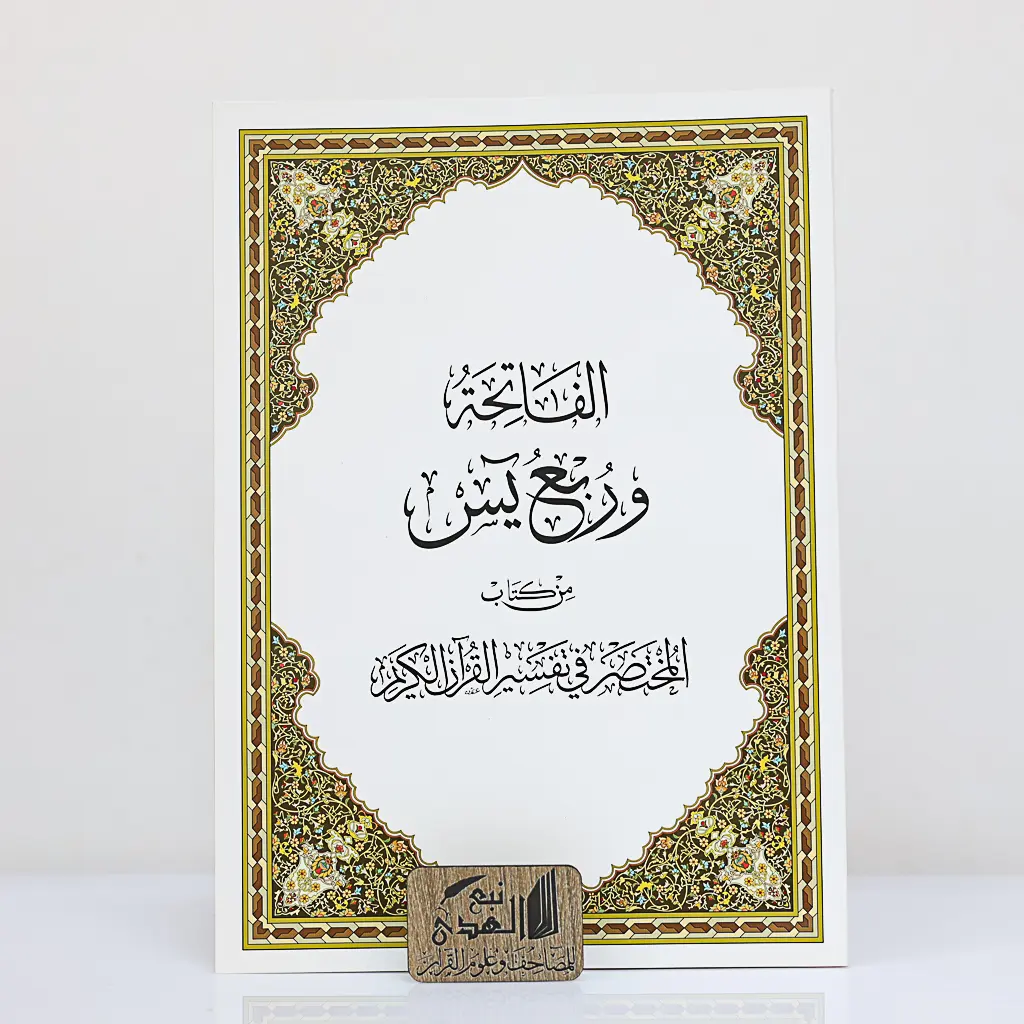 الفَاتِحَةُ
وَرُبعُ يسٓ
مِنْ كِتَابْ
المُخْتَصَرْ فِي تَفْسِيْرِ القُرْآنِ الكَرِيْمِ
نبع
الهدى
للمصاحف وعلوم القرآن